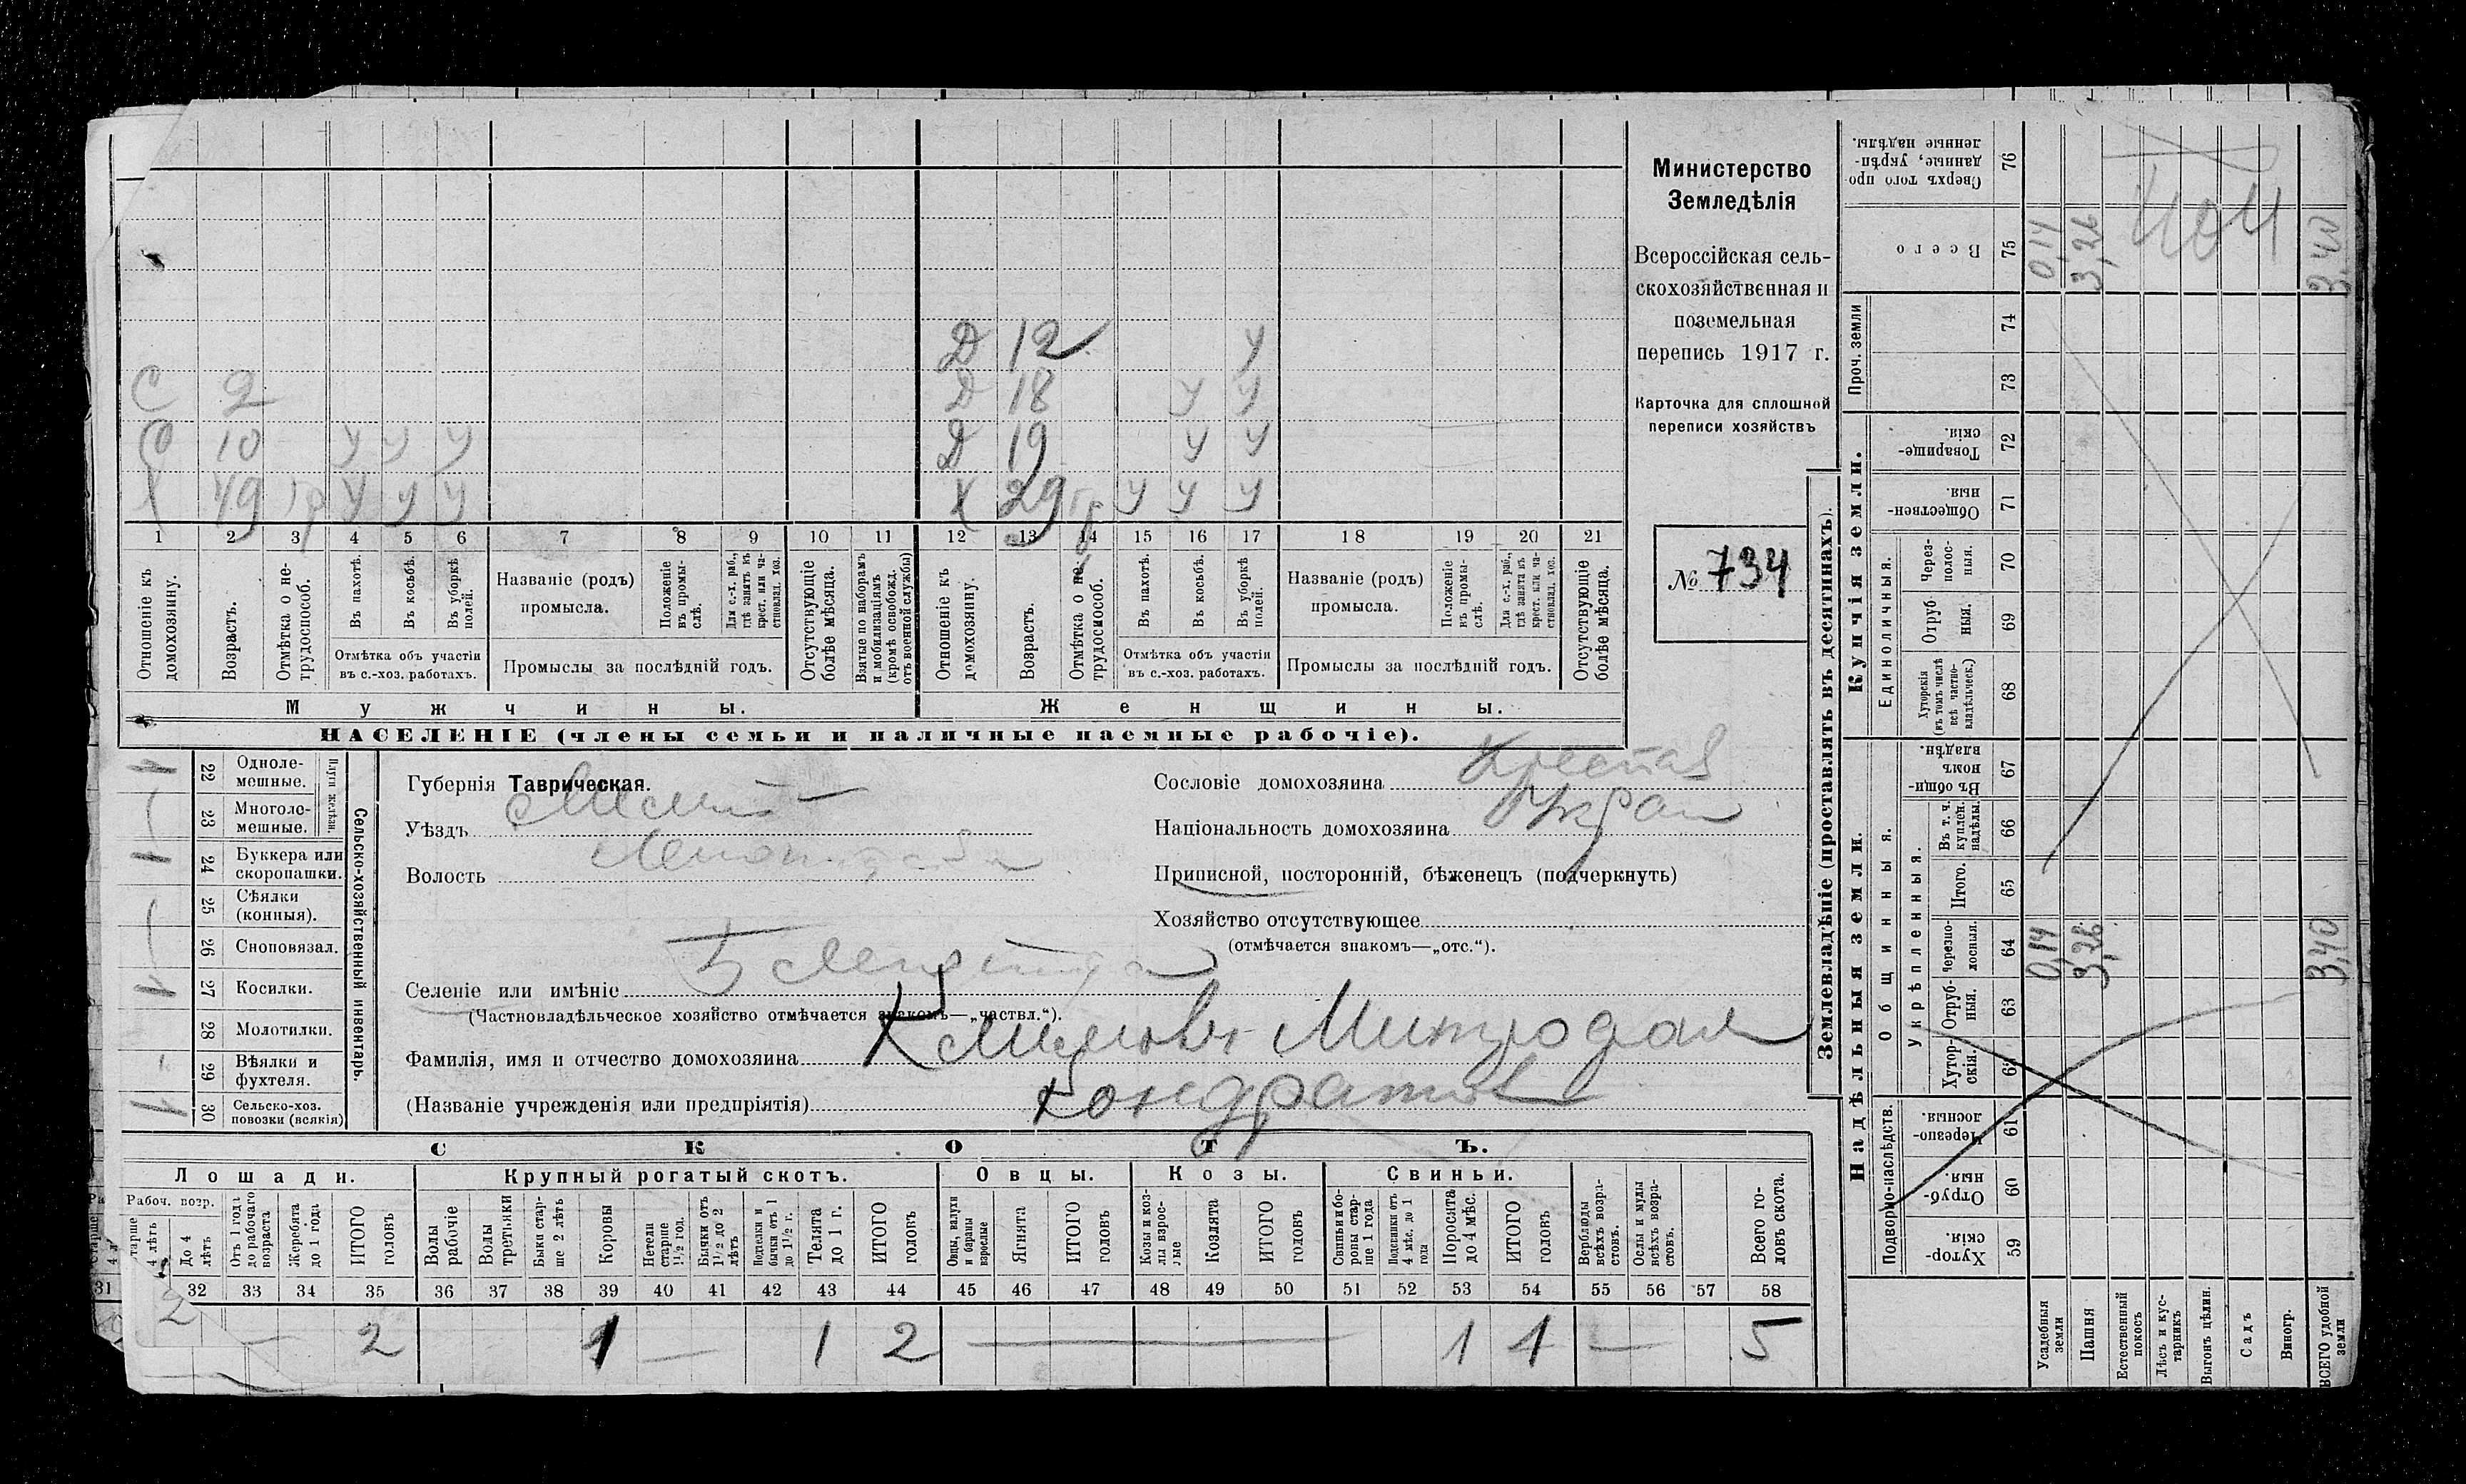 Д 12 У
С 2 Д 18 У У
С 10 У У У Д 19 У У
Х 49 гр У У У Х 29 гр У У У
1 2 3 4 5 6 7 8 9 10 11 12 13 14 15 16 17 18 19 20 21
Отношеніе къ домохозяину.
Возрастъ.
Отмѣтка о не-трудоспособ.
Въ пахотѣ.
Въ косьбѣ.
Въ уборкѣ полей.
Отмѣтка объ участіи
въ с.-хоз. работахъ.
Названіе (родъ)
промысла.
Положеніе въ промы-слѣ.
Для с.-х. раб., гдѣ занятъ къ крест. или ча-стновлад. хоз.
Промыслы за послѣдній годъ.
Отсутствующіе болѣе мѣсяца.
Взятые по наборамъ и мобилизаціямъ (кромѣ освобожд. отъ военной службы)
Отношеніе къ домохозяину.
Возрастъ.
Отмѣтка о не-трудоспособ.
Въ пахотѣ.
Въ косьбѣ.
Въ уборкѣ полей.
Отмѣтка объ участіи
въ с.-хоз. работахъ.
Названіе (родъ)
промысла.
Положеніе въ промы-слѣ.
Для с.-х. раб., гдѣ занята къ крест. или ча-стновлад. хоз.
Промыслы за послѣдній годъ.
Отсутствующіе болѣе мѣсяца.
Мужчины.
Женщины.
НАСЕЛЕНІЕ (члены семьи и наличные наемные рабочіе).
Министерство
Земледѣлія
Всероссійская сель-
скохозяйственная и
поземельная
перепись 1917 г.
Карточка для сплошной
переписи хозяйствъ
№ 734
Губернія Таврическая.
Уѣздъ Мелит
Волость
Селеніе или имѣніе
(Частновладѣльческое хозяйство отмѣчается знакомъ—„частвл.“).
Фамилія, имя и отчество домохозяина Климовъ Митрофан
(Названіе учрежденія или предпріятія) Кондратов
Сословіе домохозяина Крестья
Національность домохозяина Украи
Приписной, посторонній, бѣженецъ (подчеркнуть)
Хозяйство отсутствующее
(отмѣчается знакомъ—„отс.“).
Сельско-хозяйственный инвентарь.
Плуги желѣзн.
22 Одноле-мешные. 1
23 Многоле-мешные. —
24 Буккера или скоропашки. 1
25 Сѣялки (конныя). —
26 Сноповязал.
27 Косилки. 1
28 Молотилки.
29 Вѣялки и фухтеля. -
30 Сельско-хоз. повозки (всякія) 1
СКОТЪ.
Лошади. Крупный рогатый скотъ. Овцы. Козы. Свиньи.
Рабоч. возр.
До 4 лѣтъ
Отъ 1 года до рабочаго возраста
Жеребята до 1 года
ИТОГО головъ
Волы рабочіе
Волы третьяки
Быки стар-ше 2 лѣтъ
Коровы
Нетели старше 1½ год.
Бычки отъ 1½ до 2 лѣтъ
Подтелки и бычки отъ 1 до 1½ г.
Телята до 1 г.
ИТОГО головъ
Овцы, валухи и бараны взрослые
Ягнята
ИТОГО головъ
Козы и коз-лы взрос-лые
Козлята
ИТОГО головъ
Свиньи и бо-ровы стар-ше 1 года
Подсвинки отъ 4 мѣс. до 1 года
Поросята до 4 мѣс.
ИТОГО головъ
Верблюды всѣхъ возра-стовъ.
Ослы и мулы всѣхъ возра-стовъ.
Всего го-ловъ скота.
31 32 33 34 35 36 37 38 39 40 41 42 43 44 45 46 47 48 49 50 51 52 53 54 55 56 57 58
2 — 2 1 — 1 2 — 1 1 — 5
Землевладѣніе (проставлять въ десятинахъ).
Купчія земли.
Надѣльныя земли.
Сверхъ того про-данные, укрѣп-ленные надѣлы. 76
Всего 75 0,14 3,26 3,40
Проч. земли 74 73
Товарище-скія. 72
Обществен-ныя. 71
Единоличныя.
Через-полос-ныя. 70
Отруб-ныя. 69
Хуторскія (въ томъ числѣ всѣ частно-владѣльческ.) 68
Общинныя.
Въ общин-номъ владѣн. 67
Укрѣпленныя.
Въ т. ч. куплен. надѣлы. 66
Итого. 65
Черезпо-лосныя. 64 0,14 3,26 3,40
Отруб-ныя. 63
Хутор-скія. 62
Подворно-наслѣдств.
Черезпо-лосныя. 61
Отруб-ныя. 60
Хутор-скія. 59
Усадебныя земли
Пашня
Естественный покосъ
Лѣсъ и кус-тарникъ
Выгонъ цѣлин.
Садъ
Виногр.
ВСЕГО удобной земли